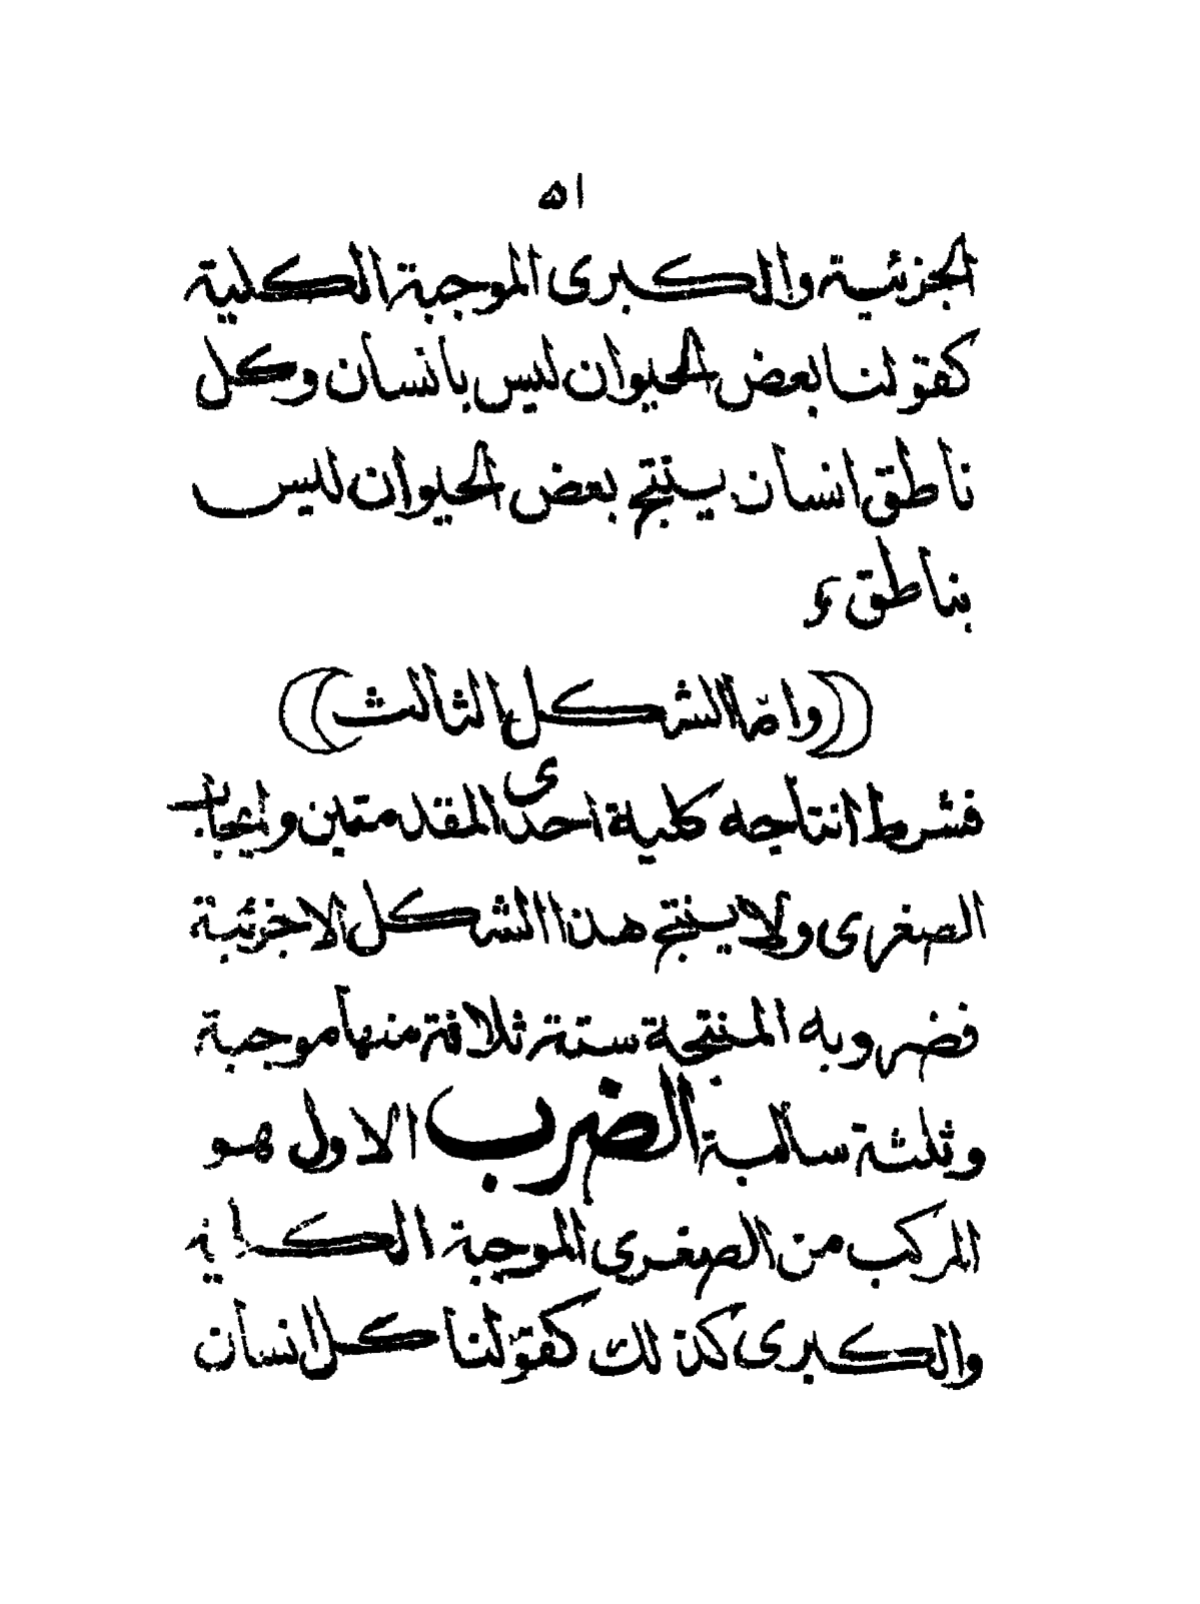 ٥١
الجزئية والكبرى الموجبة الكلية
كقولنا بعض الحيوان ليس بانسان وكل
ناطق انسان ينتج بعض الحيوان ليس
بناطق ء
((واما الشكل الثالث))
فشرط انتاجه كلية احدى المقدمتين وايجاب
الصغرى ولا ينتج هذا الشكل الا جزئية
فضروبه المنتجة ستة ثلاثة منها موجبة
وثلثة سالبة الضرب الاول هو
المركب من الصغرى الموجبة الكلية
والكبرى كذلك كقولنا كل انسان